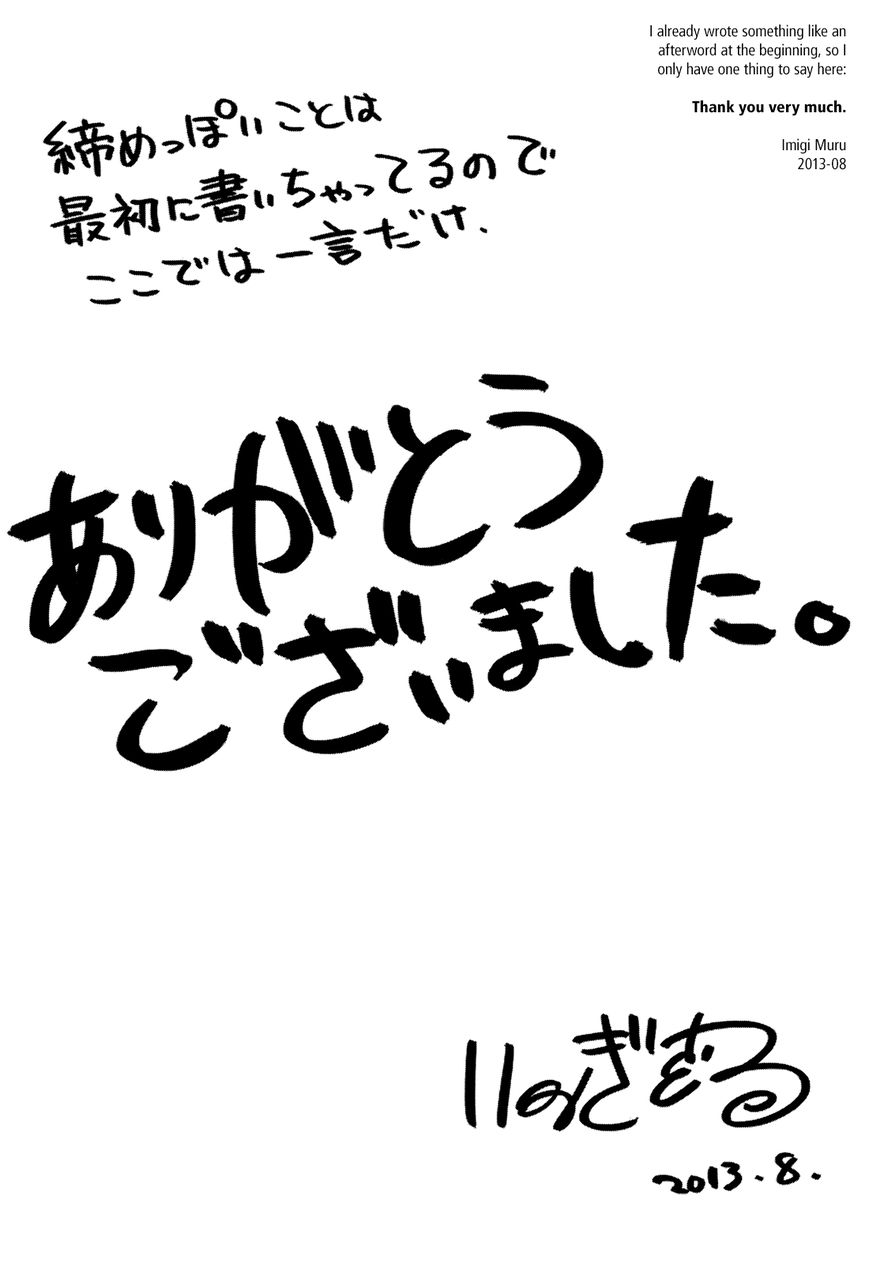 I already wrote something like an
afterword at the beginning, so I
only have one thing to say here:
Thank you very much.
Imigi Muru
2013-08
締めっぽいことは
最初に書いちゃってるので
ここでは一言だけ、
ありがとう
ございました。
2013.8.